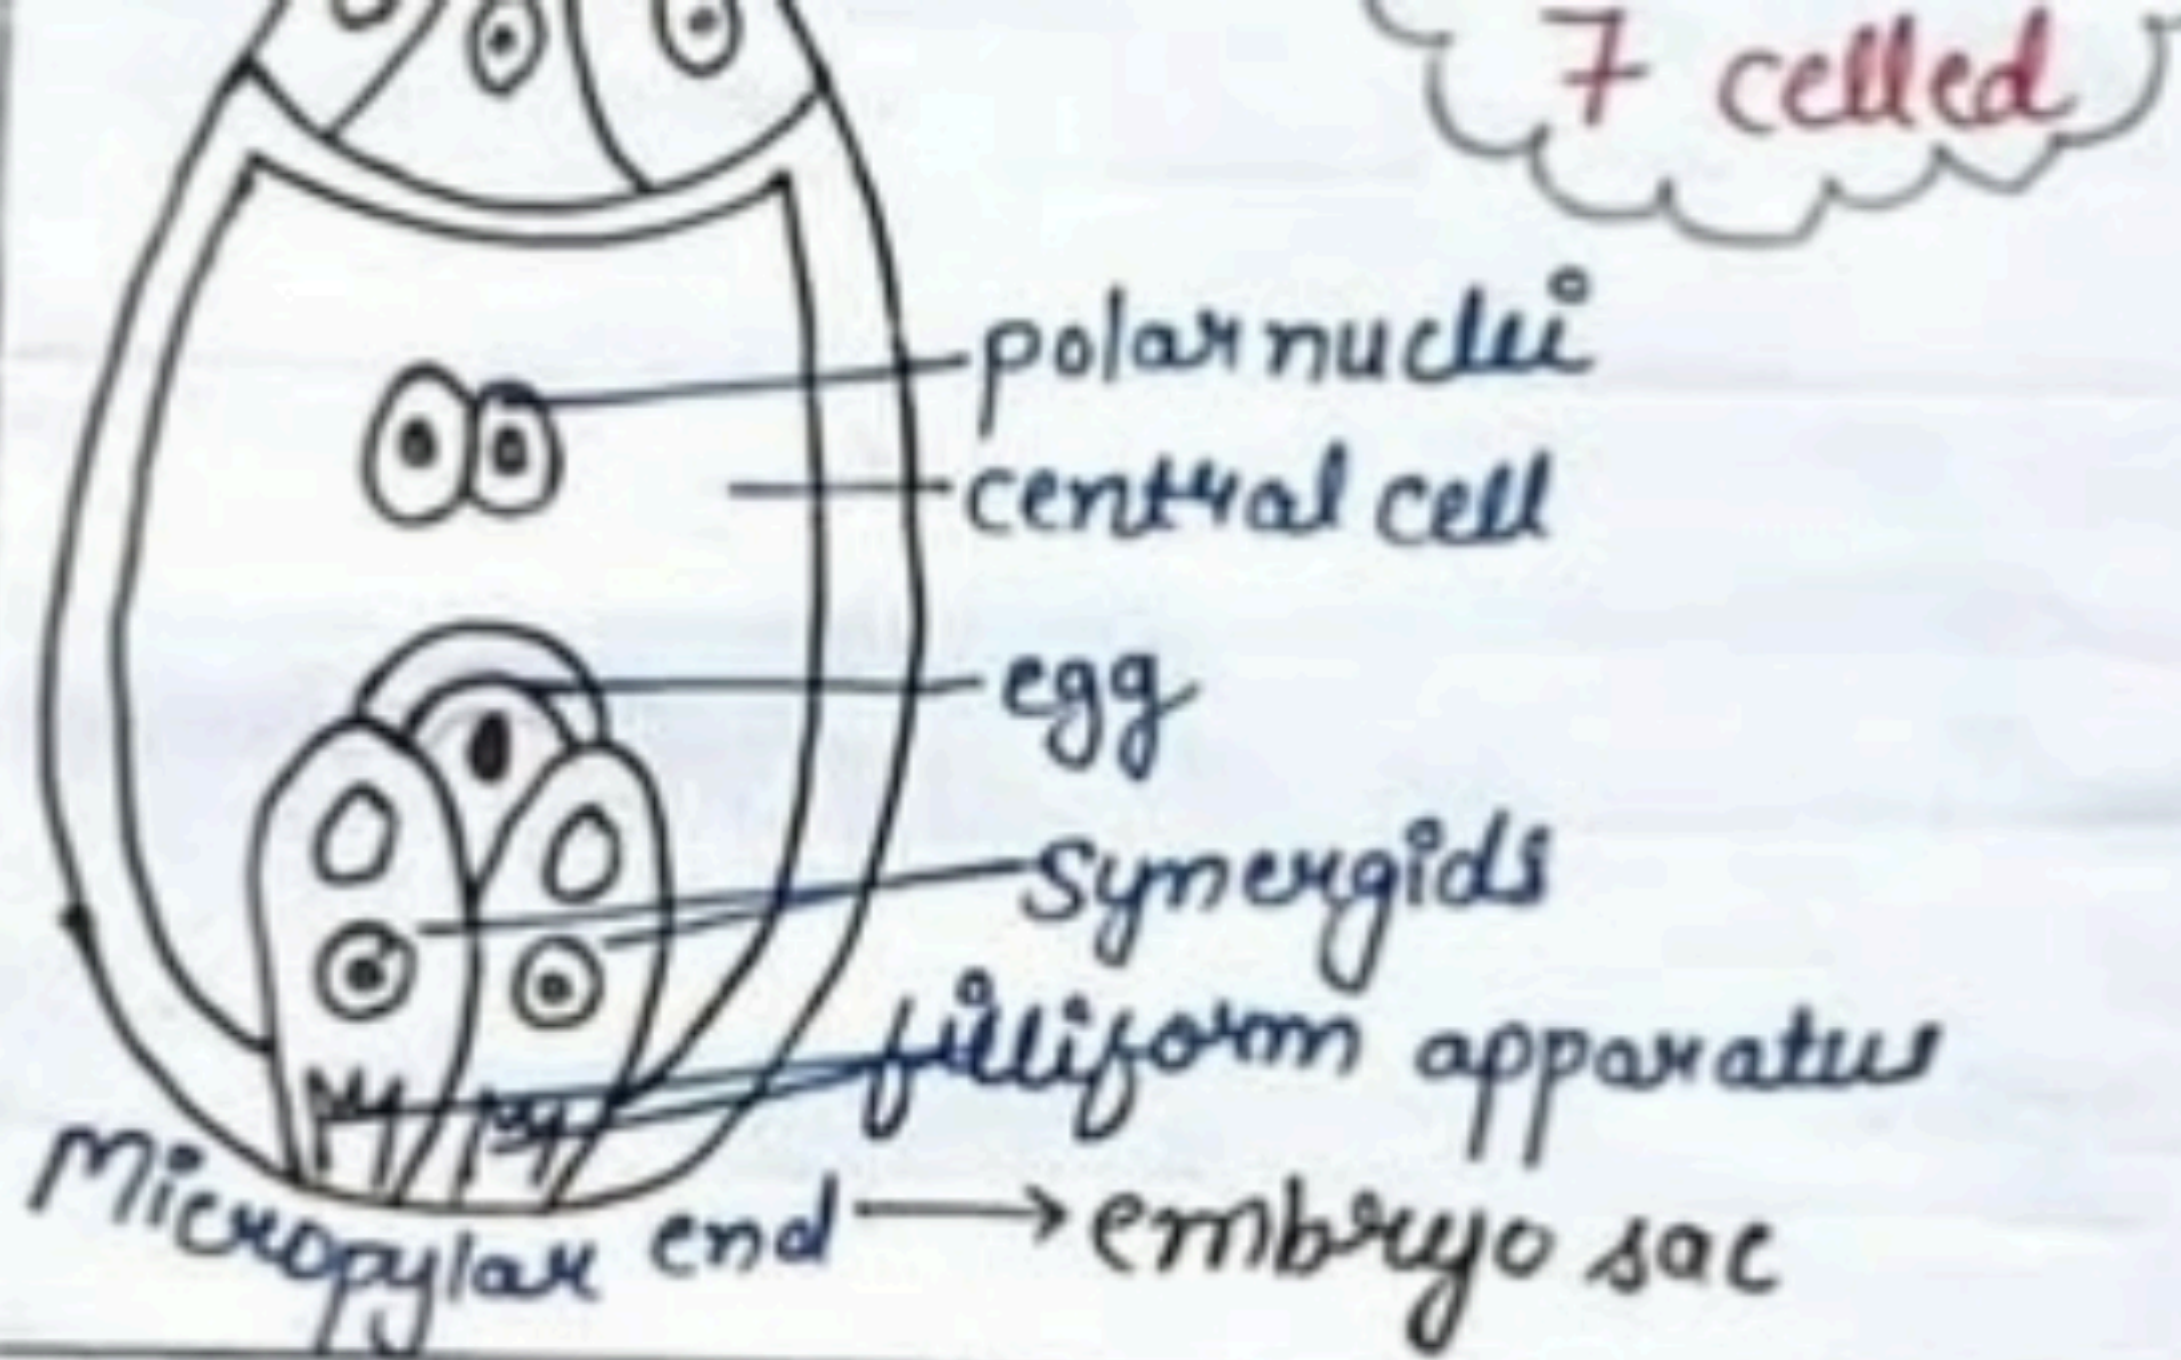 7 celled
polar nuclei
central cell
egg
synergids
filliform apparatus
Micropylar end → embryo sac